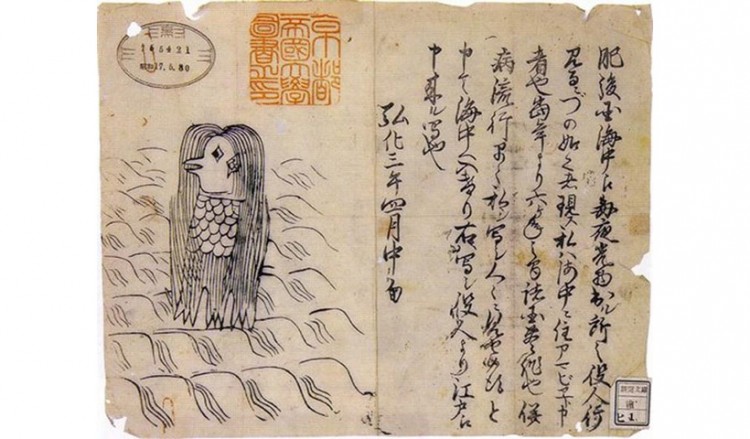 肥後国海中江毎夜光物出ル所之役人行
見るニづの如之者現ス私ハ海中ニ住アマビヱト申
者也當年より六ヶ年之間諸国豊作也併
病流行早々私シ写シ人々ニ見せ候得と
申て海中へ入けり右写シ役人より江戸江
申来ル写也
弘化三年四月中旬
京都
帝國大學
圖書之印
17.5.30
新聞文庫
ヒ 1